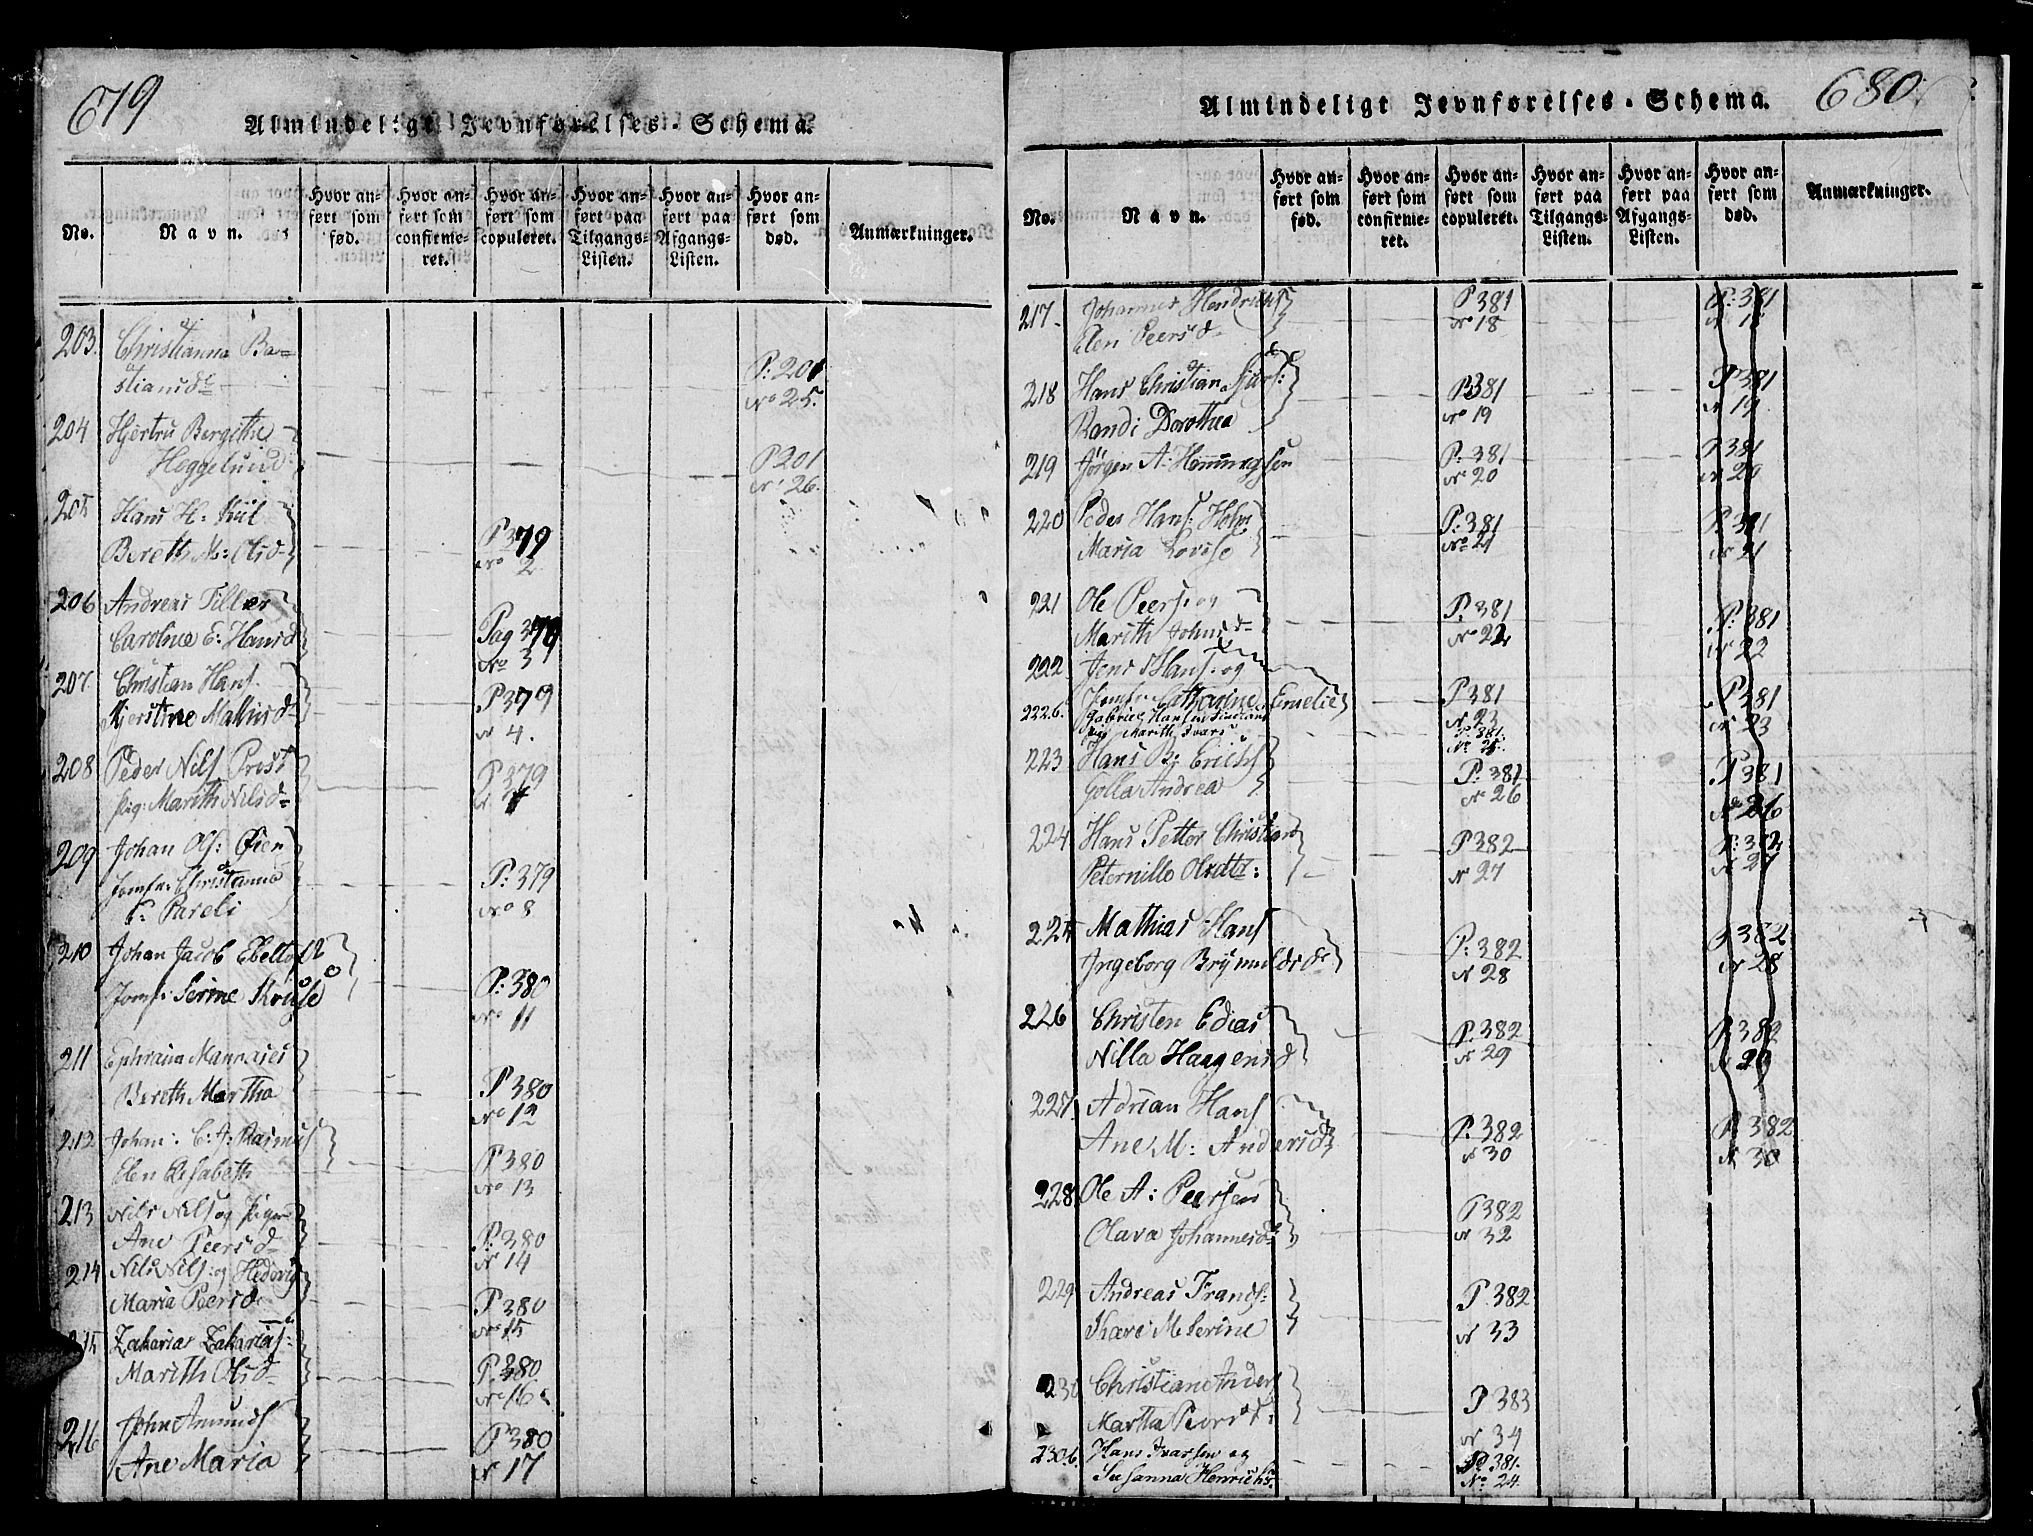 679
Almindeligt Jevnførelses-Schema.
No.
Navn.
Hvor an-
ført som
fød.
Hvor an-
ført som
confirme-
ret.
Hvor an-
ført som
copuleret.
Hvor an-
ført paa
Tilgangs-
Listen.
Hvor an-
ført paa
Afgangs-
Listen.
Hvor an-
ført som
død.
Anmærkninger.
203. Christianna Ba-
stiansd P: 201
No 25.
204 Hjertru Bergithe
Heggelund P 201
No 26.
205 Hans H: Kiil
Bereth M: Olsd P 379
No 2
206 Andreas Tiller
Caroline E: Hansd Pag 379
No 3
207. Christian Hans.
Kjerstine Mathisd P 379
N 4.
208 Peder Nils Prest
pig: Marith Nilsd P 379
209 Johan Ols: Øien
Jomfr: Christianna
Pareli P: 379
No 8
210 Johan Jacob Ebeltoft
Jomf: Serine Kruse P: 380
No 11
211 Ephraim Mannases
Bereth Martha P 380
No 12
212 Johan: C: A: Rasmus
Elen Elisabeth P 380
No 13
213 Nils Nils og Pigen
Ane Peersd P: 380
N 14
214 Nils Nils: og Hedevig
Maria Peersd P 380
No 15
215 Zakarias Zakarias:
Marith Olsd P 380
No 16
216 John Amunds
Ane Maria P 380
N 17
680
Almindeligt Jevnførelses-Schema.
No.
Navn.
Hvor an-
ført som
fød.
Hvor an-
ført som
confirme-
ret.
Hvor an-
ført som
copuleret.
Hvor an-
ført paa
Tilgangs-
Listen.
Hvor an-
ført paa
Afgangs-
Listen.
Hvor an-
ført som
død.
Anmærkninger.
217. Johannes Hendriks P 381 P: 381
Elen Peersd No 18 No 18
218 Hans Christian P 381 P 381
Randi Dorothea No 19 N 19
219 Jörgen A: Hemmingsen P: 381 P 381
No 20 N 20
220 Peder Hans: Holm P: 381 P: 381
Maria Lovise No 21 N 21
221 Ole Peers: og P. 381 P: 381
Marith Johnsd No 22 N 22
222. Jens Hans: og
Jomfr Catharine Emelie P 381 P 381
N 23 N 23
222.b. Gabriel Hansen
pig Marith Ivars P. 381.
No 25.
223 Hans B: Erichs P: 381 P 381
Golla Andrea No 26 No 26
224 Hans Petter Christian P 382 P: 382
Peternille Olsdtr: N 27 N 27
225 Mathias Hans P: 382 P 382
Ingeborg Brynnildsd N 28 N 28
226 Christen Edias P. 382 P 382
Nilla Haagensd N 29 N 29
227 Adrian Hans P. 382 P 382
Ane M: Andersd N 30 N 30
228 Ole A: Peersen P 382
Olava Johannesd N 32
229 Andreas Frands: P 382
Kare M Serine N 33
230 Christian Anders P 383
Martha Peersd: N 34
230.b. Hans Ivarsen og P. 381.
Susanna Henrichs. No 24.